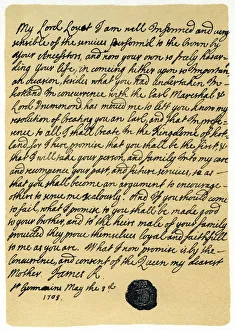 My Lord Lovat I am well Informed and very
sensible of the services performed to the Crown by
your Ancestors, and now your own so freely hazar-
ding your life, in comeing hither upon so Important
an ocasion, beside what you have undertaken, In
scotland In concurrence with the Earl Marshall &
Lord Drummond has moved me to let you know my
resolution of Creating you an Earl, and that In prefe-
rence to all I shall Create In the Kingdome of Scot-
land for I here promise, that you shall be the first, &
that I will take your person, and family into my care
and recompence your past, and future services, so as
that you shall become an argument to encourage
others to serve me zealously. And if you should come
to fail, what I promise to you shall be made good
to your Brother, and to the heirs male of your family
provided they prove themselves loyal and faithfull
to me as you are. What I now promise is by the
Concurrence, and consent of the Queen my dearest
Mother James R.
St Germains May the 3th
1703.